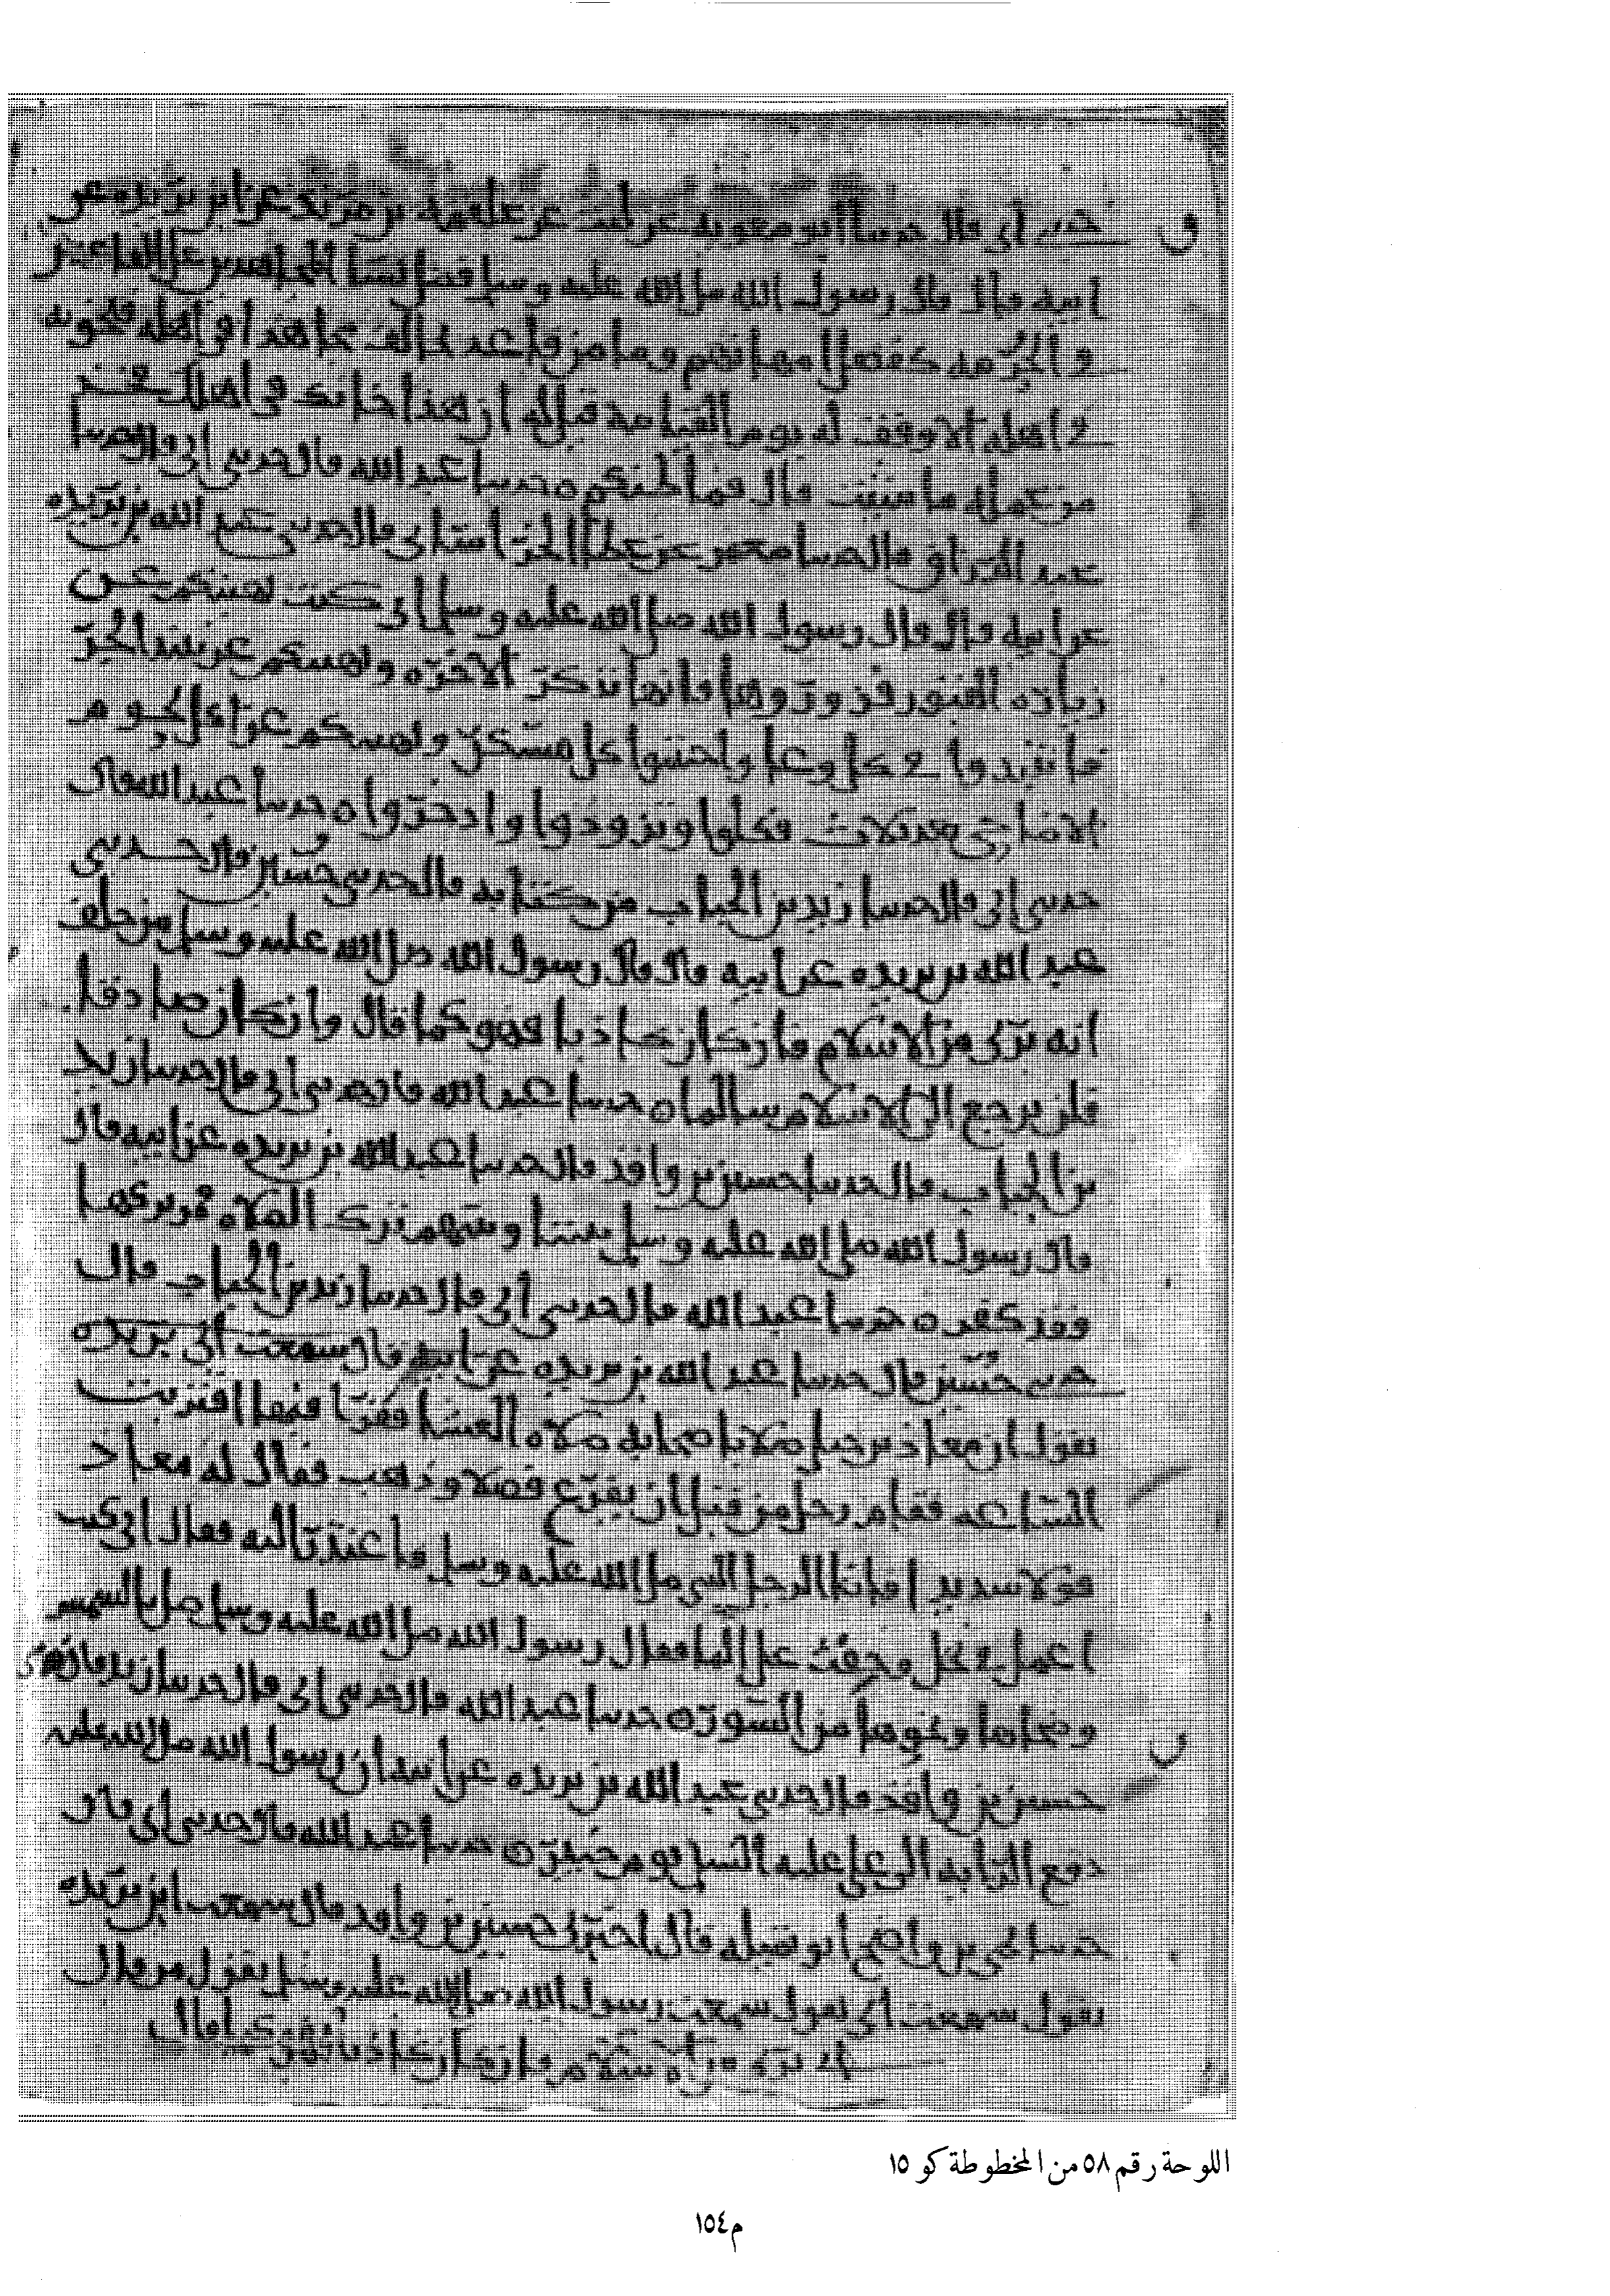 حدثني أبي قال حدثنا أبو معوية عن ليث عن علقمة بن مرثد عن ابن بريده عن
ابيه قال قال رسول الله صلى الله عليه وسلم فضل نسا المجاهدين على القاعدين
في الحرمه كفضل امهاتهم وما من قاعد يخالف مجاهدا في اهله فيخونه
في اهله الا وقف له يوم القيامة قيل له ان هذا خانك في اهلك فخذ
من عمله ما شئت قال فما ظنكم ه حدثنا عبد الله قال حدثني ابي قال حدثنا
عبد الرزاق قال حدثنا معمر عن عطا الخراساني قال حدثني عبد الله بن بريده
عن ابيه قال قال رسول الله صلى الله عليه وسلم اني كنت نهيتكم عن
زياره القبور فزوروها فانها تذكر الاخره ونهيتكم عن نبيذ الجر
فانتبذوا في كل وعا واجتنبوا كل مسكر ونهيتكم عن اكل لحوم
الاضاحي بعد ثلاث فكلوا وتزودوا وادخروا ه حدثنا عبد الله قال
حدثني ابي قال حدثنا زيد بن الحباب من كتابه قال حدثني حسين قال حدثني
عبد الله بن بريده عن ابيه قال قال رسول الله صلى الله عليه وسلم من حلف
انه بري من الاسلام فان كان كاذبا فهو كما قال وان كان صادقا
فلن يرجع الى الاسلام سالما ه حدثنا عبد الله قال حدثني ابي قال حدثنا زيد
بن الحباب قال حدثنا حسين بن واقد قال حدثنا عبد الله بن بريده عن ابيه قال
قال رسول الله صلى الله عليه وسلم بيننا وبينهم ترك الصلاه فمن تركها
فقد كفر ه حدثنا عبد الله قال حدثني أبي قال حدثنا زيد بن الحباب قال
حدثني حسين قال حدثنا عبد الله بن بريده عن ابيه قال سمعت أبي بريده
يقول ان معاذ بن جبل صلا باصحابه صلاه العشا فقرا فيها اقتربت
الساعه فقام رجل من قبل ان يفرغ فصلا وذهب فقال له معاذ
قولا سديدا فاتا الرجل النبي صلى الله عليه وسلم فاعتذر اليه فقال اني كنت
اعمل في نخل وخفت على الما فقال رسول الله صلى الله عليه وسلم صل بالشمس
وضحاها ونحوها من السور ه حدثنا عبد الله قال حدثني ابي قال حدثنا زيد قال حدثني
حسين بن واقد قال حدثني عبد الله بن بريده عن ابيه ان رسول الله صلى الله عليه
دفع الرايه الى علي عليه السلم يوم خيبر ه حدثنا عبد الله قال حدثني ابي قال
حدثنا يحيى بن واضح ابو تميله قال اخبرني حسين بن واقد قال سمعت ابن بريده
يقول سمعت أبي يقول سمعت رسول الله صلى الله عليه وسلم يقول من قال
انه بري من الاسلام فان كان كاذبا فهو كما قال
اللوحة رقم ٥٨ من المخطوطة كو ١٥
م١٥٤